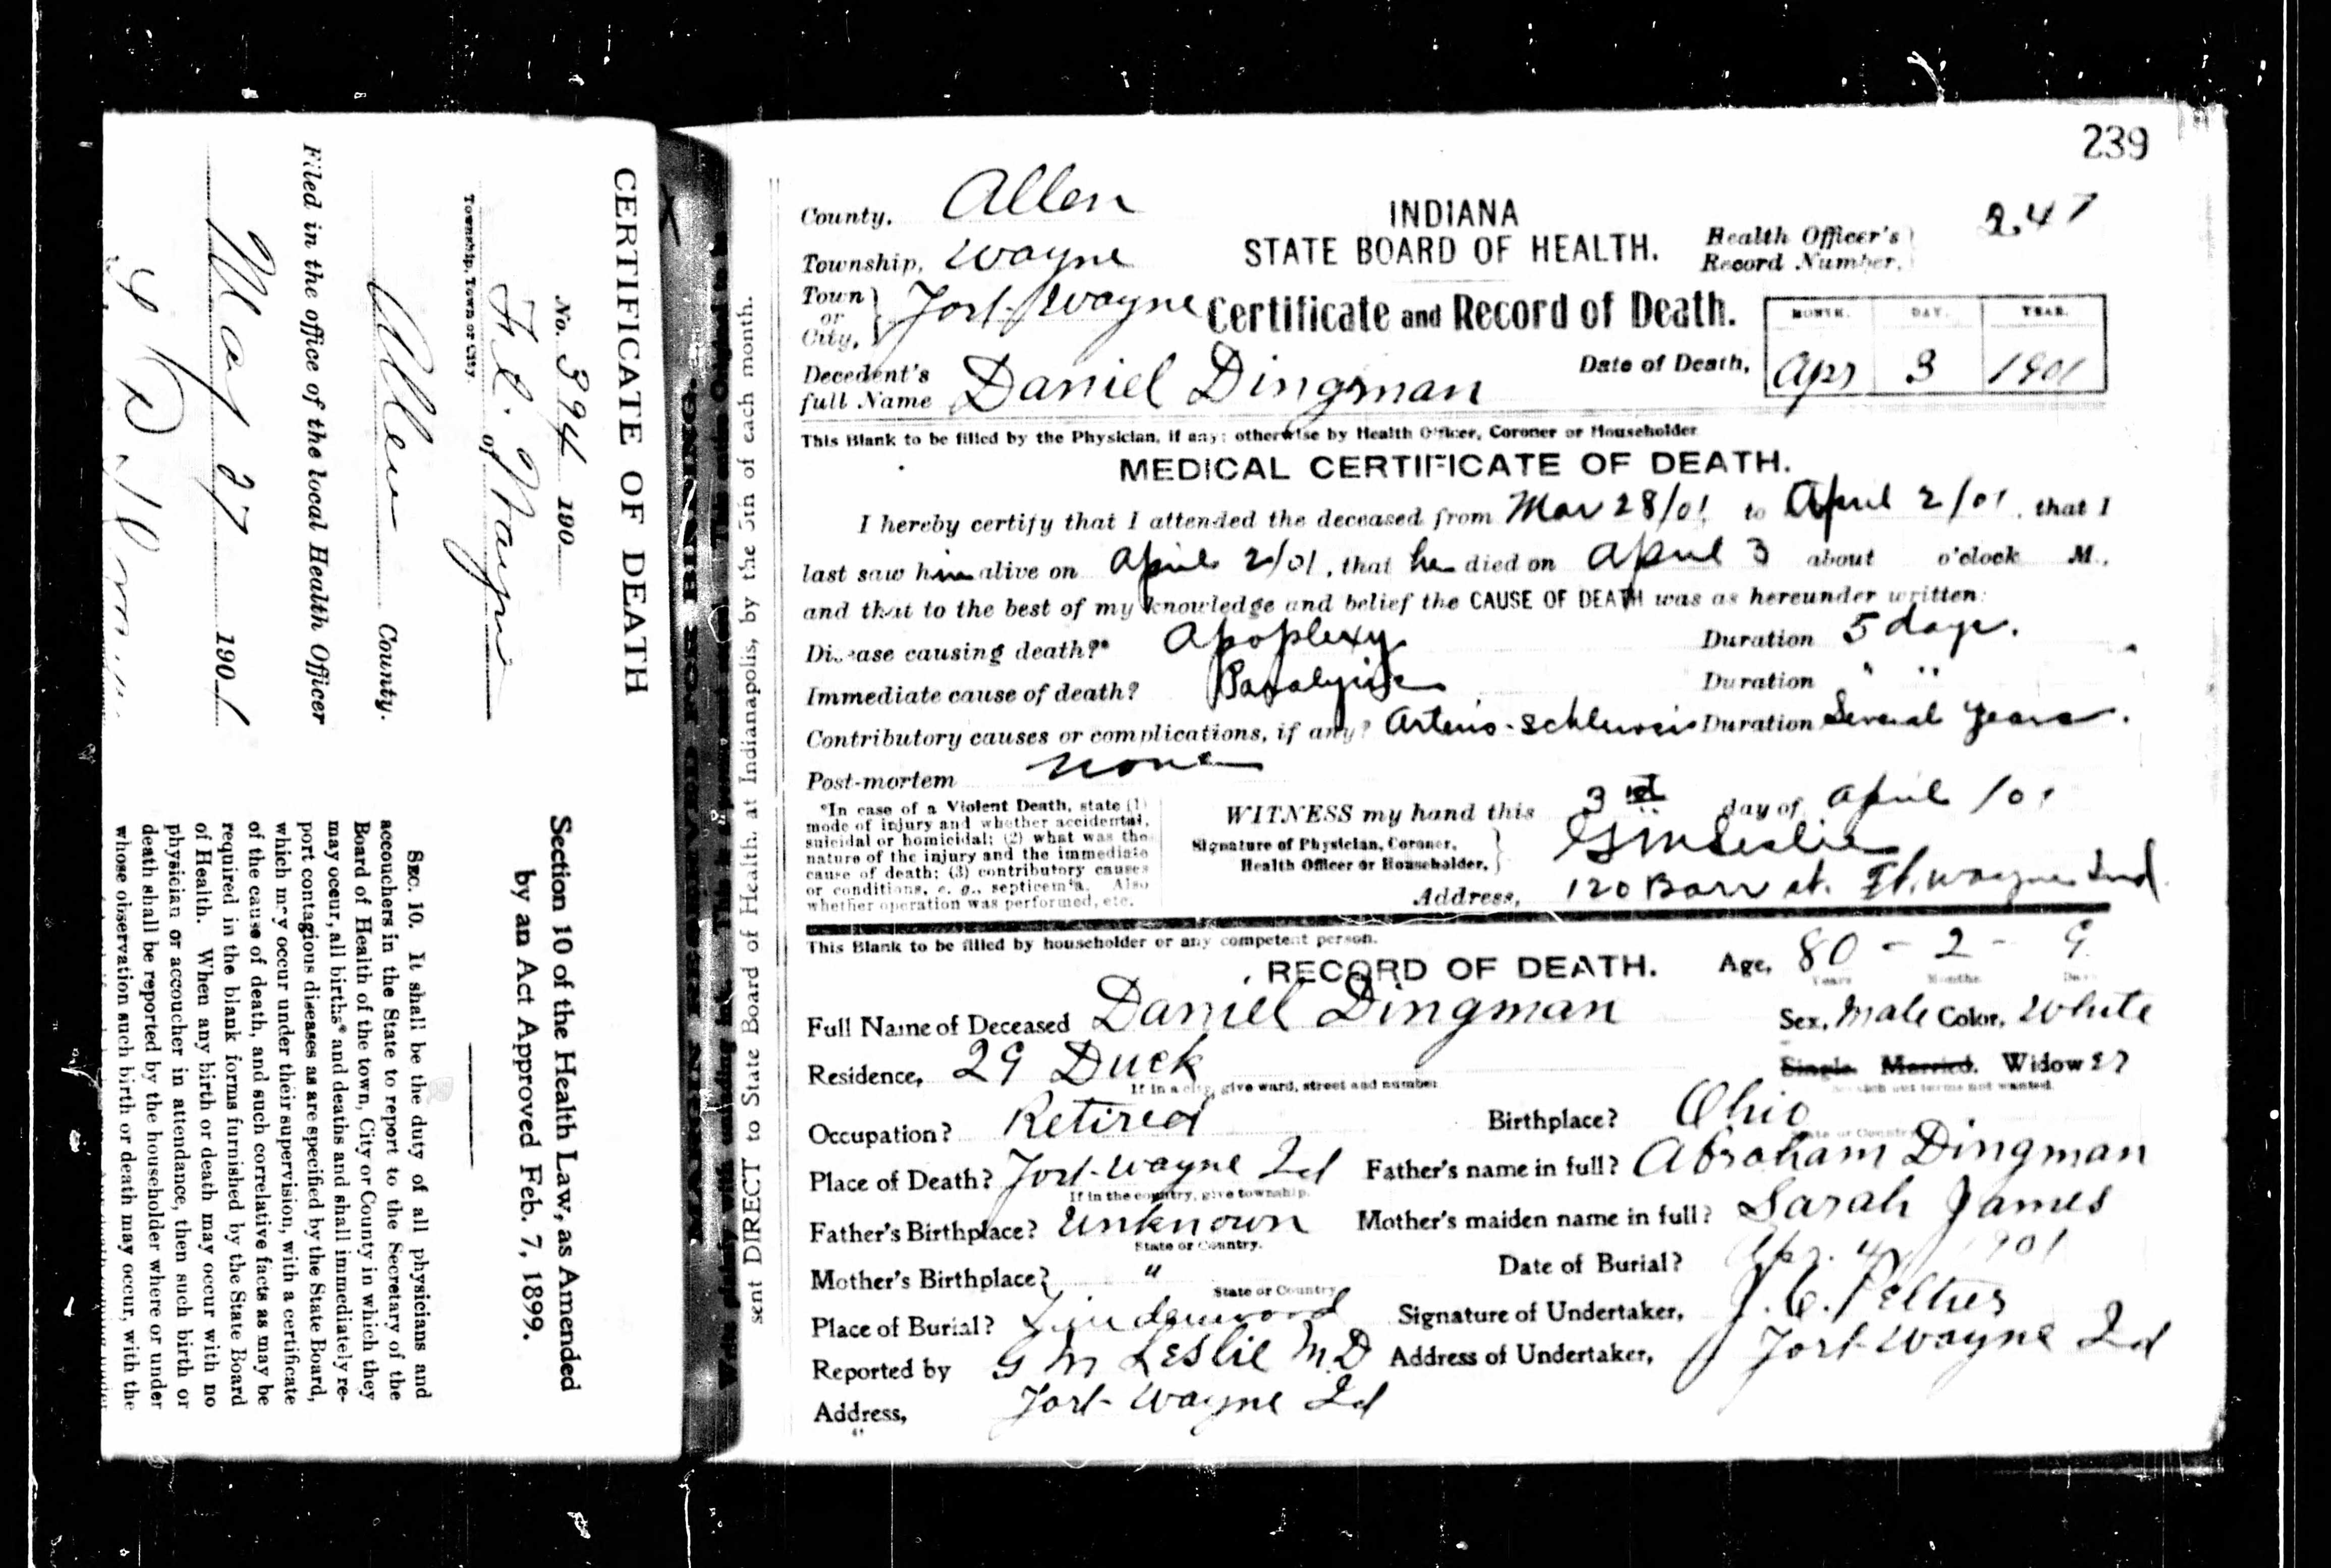 239
County. Allen
INDIANA
STATE BOARD OF HEALTH.
Health Officer's
Record Number. 247
Township, Wayne
Town
or
City, Fort Wayne
Certificate and Record of Death.
MONTH. DAY. YEAR.
Date of Death, Apr 3 1901
Decedent's
full Name Daniel Dingman
This Blank to be filled by the Physician, if any; otherwise by Health Officer, Coroner or Householder
MEDICAL CERTIFICATE OF DEATH.
I hereby certify that I attended the deceased from Mar 28/01 to April 2/01, that I
last saw him alive on April 2/01, that he died on April 3 about o'clock M.,
and that to the best of my knowledge and belief the CAUSE OF DEATH was as hereunder written:
Disease causing death?* Apoplexy Duration 5 days.
Immediate cause of death? Paralysis Duration " "
Contributory causes or complications, if any? Arterio-schlerosis Duration Several years.
Post-mortem none
*In case of a Violent Death, state (1)
mode of injury and whether accidental,
suicidal or homicidal; (2) what was the
nature of the injury and the immediate
cause of death; (3) contributory causes
or conditions, e. g., septicemia. Also
whether operation was performed, etc.
WITNESS my hand this 3rd day of April /01
Signature of Physician, Coroner,
Health Officer or Householder, G M Leslie
Address, 120 Barr st. Ft. Wayne Ind.
This Blank to be filled by householder or any competent person.
RECORD OF DEATH.
Age, 80 - 2 - 9
Years Months Days
Full Name of Deceased Daniel Dingman
Sex, Male Color, White
Residence, 29 Duck
If in a city, give ward, street and number.
Single. Married. Widow
Scratch out terms not wanted.
Occupation? Retired
Birthplace? Ohio
State or Country
Place of Death? Fort-Wayne Id
If in the country, give township.
Father's name in full? Abraham Dingman
Father's Birthplace? Unknown
State or Country.
Mother's maiden name in full? Sarah James
Mother's Birthplace? "
State or Country
Date of Burial? Apr. 4, 1901
Place of Burial? Lindenwood
Signature of Undertaker, J. C. Peltier
Reported by G M Leslie M.D
Address of Undertaker, Fort-Wayne Id
Address, Fort-Wayne Id
sent DIRECT to State Board of Health, at Indianapolis, by the 5th of each month.
CERTIFICATE OF DEATH
No. 394 190
Ft. Wayne
Township, Town or City.
of
Allen County.
Filed in the office of the local Health Officer
May 27 1901
Section 10 of the Health Law, as Amended
by an Act Approved Feb. 7, 1899.
SEC. 10. It shall be the duty of all physicians and
accouchers in the State to report to the Secretary of the
Board of Health of the town, City or County in which they
may occur, all births* and deaths and shall immediately re-
port contagious diseases as are specified by the State Board,
which may occur under their supervision, with a certificate
of the cause of death, and such correlative facts as may be
required in the blank forms furnished by the State Board
of Health. When any birth or death may occur with no
physician or accoucher in attendance, then such birth or
death shall be reported by the householder where or under
whose observation such birth or death may occur, with the